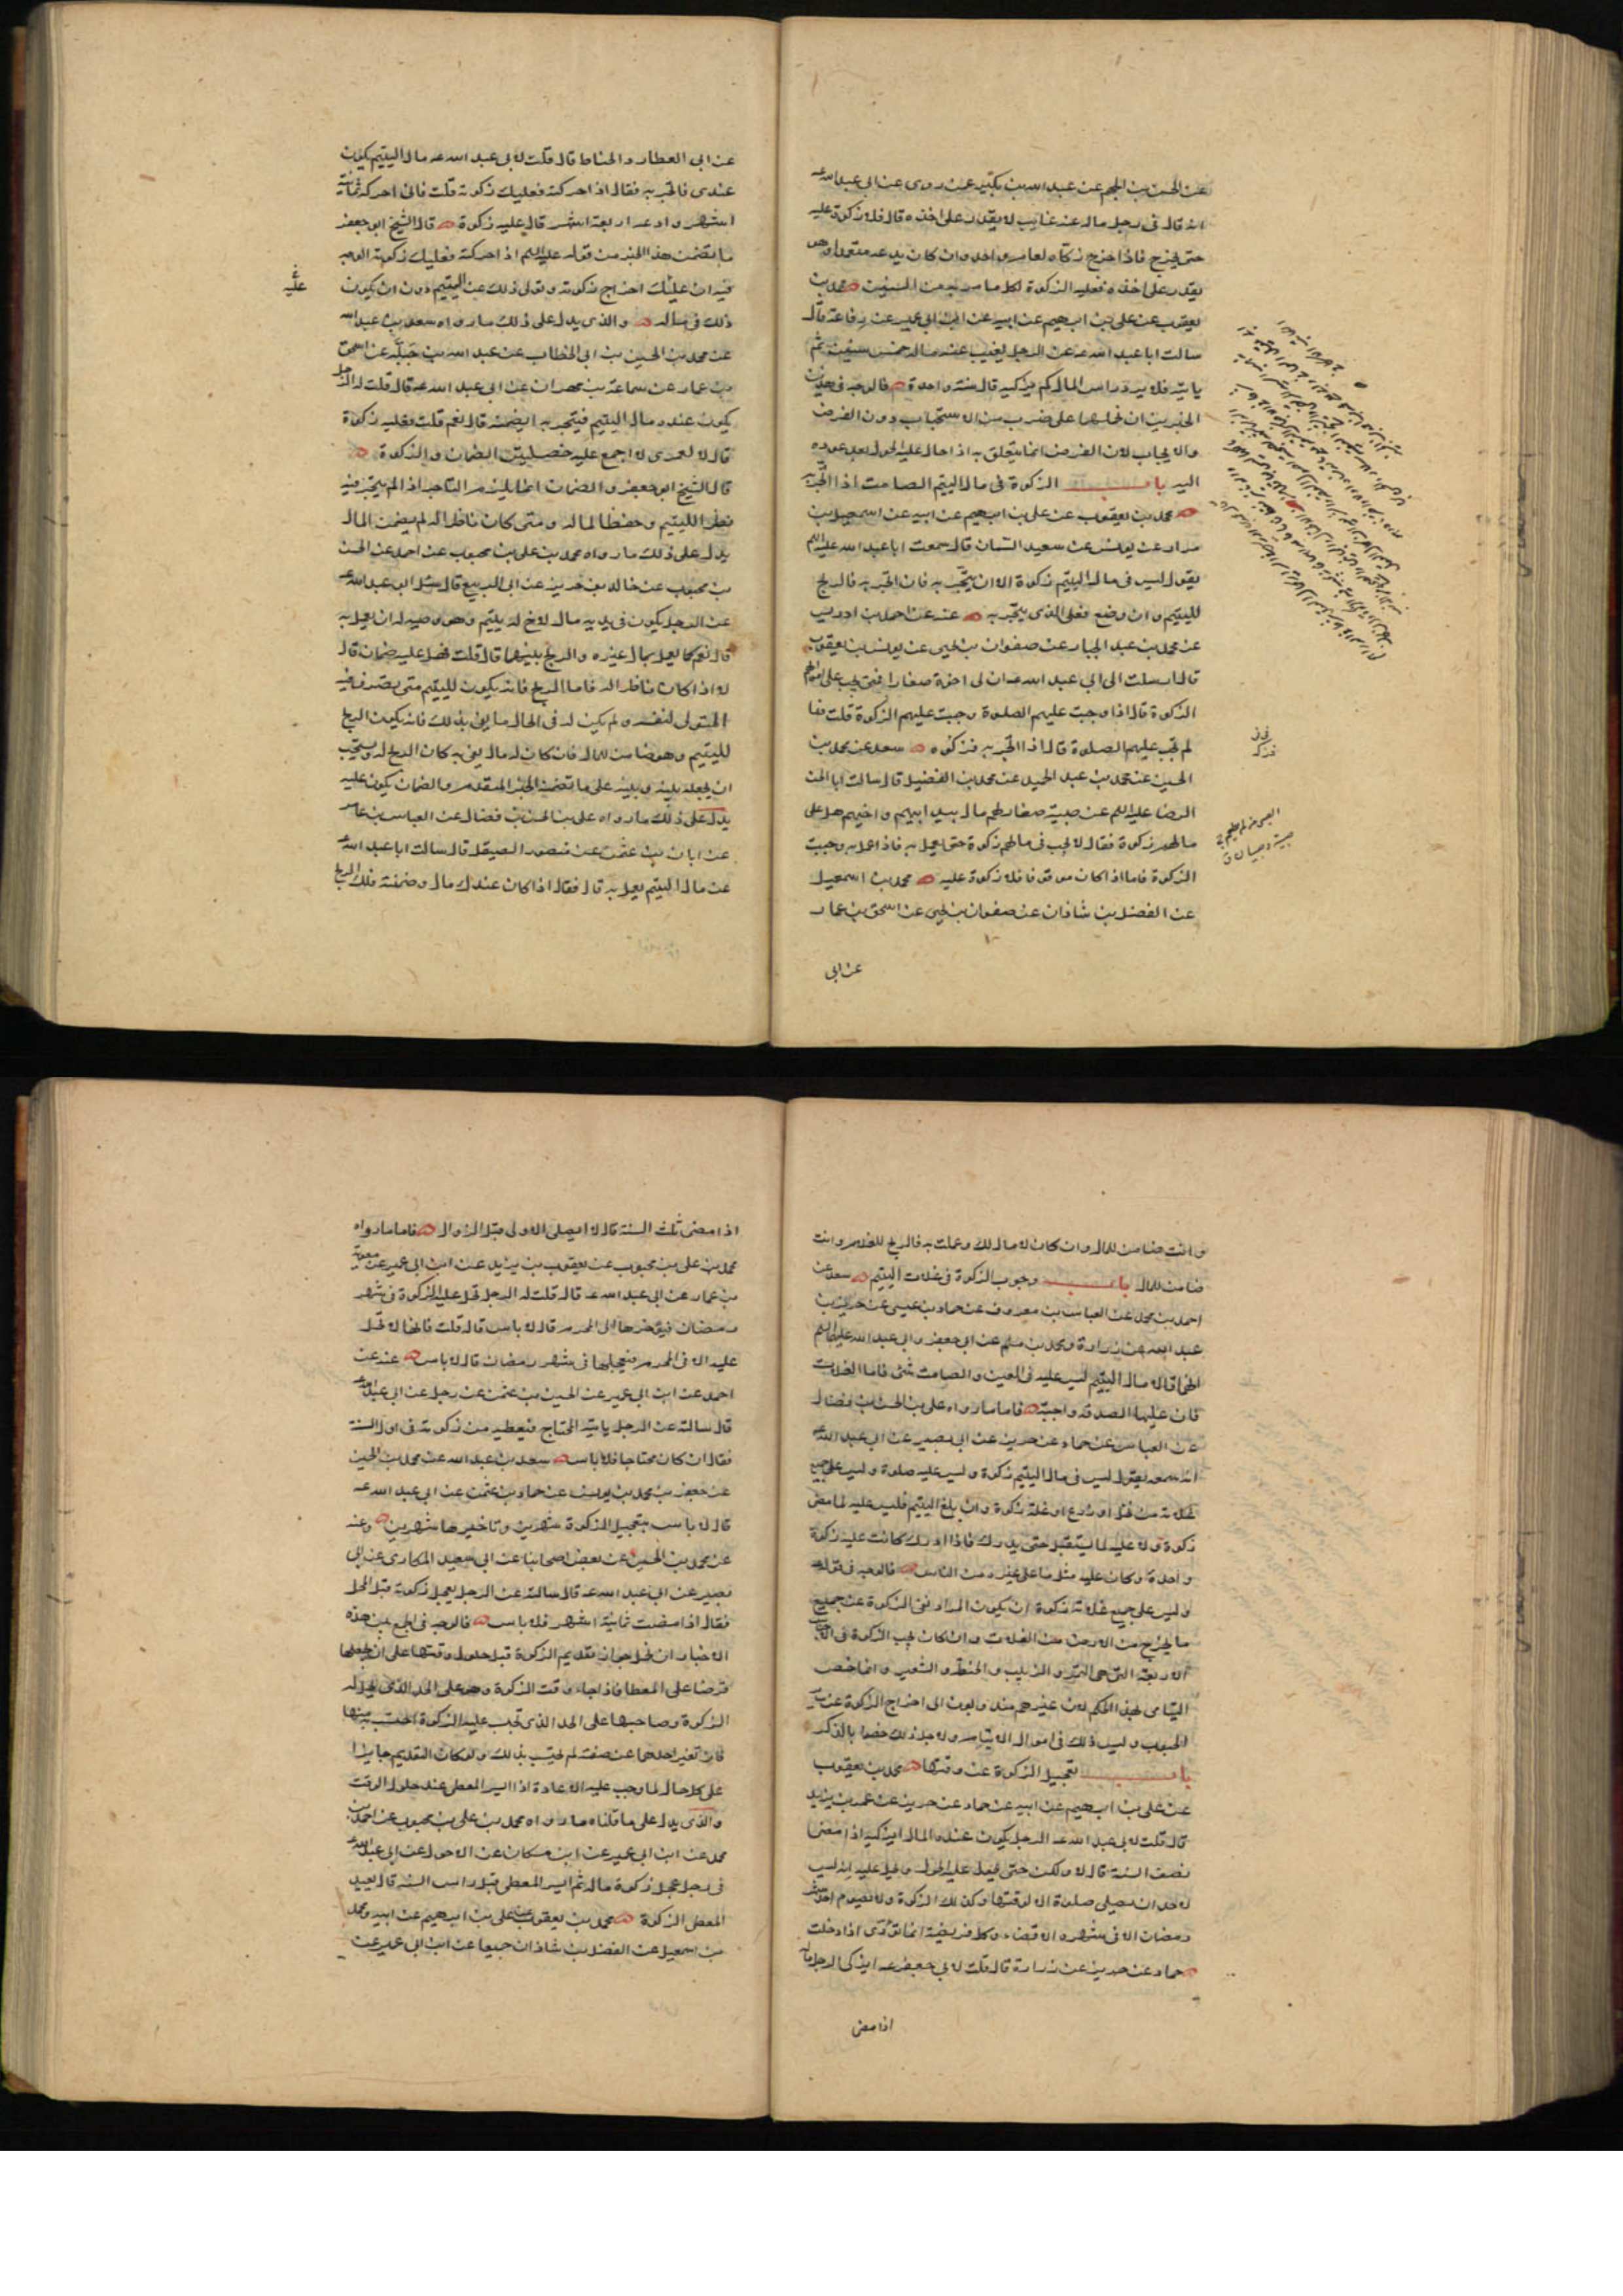 عن الحسن بن الجهم عن عبد الله بن بكير عمن روى عن ابى عبد الله ع
انه قال فى رجل ماله عنه غايب لا يقدر على اخذه قال فلا زكوة عليه
حتى يخرج فاذا خرج زكاه لعام واحد وان كان يدعه متعمدا وهو
يقدر على اخذه فعليه الزكوة لكل ما مر به من السنين محمد بن
يعقوب عن على بن ابرهيم عن ابيه عن ابن ابى عمير عن رفاعة قال
سالت ابا عبد الله ع عن الرجل يغيب عنه ماله خمس سنين ثم
ياتيه فلا يرد راس المال كم يزكيه قال سنة واحدة فالوجه فى هذين
الخبرين ان نحملهما على ضرب من الاستحباب دون الفرض
والايجاب لان الفرض انما يتعلق به اذا حال عليه الحول بعد عوده
اليه باب الزكوة فى مال اليتيم الصامت اذا اتجر به
محمد بن يعقوب عن على بن ابرهيم عن ابيه عن اسمعيل بن
مرار عن يونس عن سعيد السمان قال سمعت ابا عبد الله عليه السلم
يقول ليس فى مال اليتيم زكوة الا ان يتجر به فان اتجر به فالربح
لليتيم وان وضع فعلى الذى يتجر به عنه عن احمد بن ادريس
عن محمد بن عبد الجبار عن صفوان بن يحيى عن يونس بن يعقوب
قال ارسلت الى ابى عبد الله ع ان لى اخوة صغارا فمتى يجب على اموالهم
الزكوة قال اذا وجبت عليهم الصلوة وجبت عليهم الزكوة قلت فما
لم تجب عليهم الصلوة قال اذا اتجر به فزكوه سعد عن محمد بن
الحسين عن محمد بن عبد الحميد عن محمد بن الفضيل قال سالت ابا الحسن
الرضا عليه السلم عن صبية صغار لهم مال بيد ابيهم او اخيهم هل على
مالهم زكوة فقال لا يجب فى مالهم زكوة حتى يعمل به فاذا عمل به وجبت
الزكوة فاما اذا كان موقوفا فلا زكوة عليه محمد بن اسمعيل
عن الفضل بن شاذان عن صفوان بن يحيى عن اسحق بن عمار
عن ابى
عن ابى العطارد الحناط قال قلت لابى عبد الله ع مال اليتيم يكون
عندى فاتجر به فقال اذا حركته فعليك زكوته قلت فانى احركه ثمانية
اشهر وادعه اربعة اشهر قال عليه زكوة قال الشيخ ابو جعفر
ما يتضمن هذا الخبر من قوله عليه السلم اذا حركته فعليك زكوته الوجه
فيه ان عليك اخراج زكوته وتولى ذلك عن اليتيم دون ان يكون
ذلك فى ماله والذى يدل على ذلك ما رواه سعد بن عبد الله
عن محمد بن الحسين بن ابى الخطاب عن عبد الله بن جبلة عن اسحق
بن عمار عن سماعة بن مهران عن ابى عبد الله ع قال قلت له الرجل
يكون عنده مال اليتيم فيتجر به ايضمنه قال نعم قلت فعليه زكوة
قال لا لعمرى لا اجمع عليه خصلتين الضمان والزكوة
قال الشيخ ابو جعفر والضمان انما يلزم التاجر اذا لم يتجر فيه
نظرا لليتيم وحفظا لماله ومتى كان ناظرا له لم يضمن المال
يدل على ذلك ما رواه محمد بن على بن محبوب عن احمد عن الحسن
بن محبوب عن خالد بن جرير عن ابى الربيع قال سئل ابو عبد الله ع
عن الرجل يكون فى يديه مال لاخ له يتيم وهو وصيه له ان يعمل به
قال نعم كما يعمل بمال غيره والربح بينهما قال قلت فهل عليه ضمان قال
لا اذا كان ناظرا له فاما الربح فانه يكون لليتيم متى تصرف فيه
المتولى لنفسه ولم يكن له فى الحال ما يفى بذلك فانه يكون الربح
لليتيم وهو ضامن للمال فان كان له مال يفى به كان الربح له ويستحب
ان يجعله بينه وبينه على ما تضمنه الخبر المتقدم والضمان يكون عليه
يدل على ذلك ما رواه على بن الحسن بن فضال عن العباس بن عامر
عن ابان بن عثمن عن منصور الصيقل قال سالت ابا عبد الله ع
عن مال اليتيم يعمل به قال فقال اذا كان عندك مال وضمنته فلك الربح
وانت ضامن للمال وان كان لا مال لك وعملت به فالربح للغلام وانت
ضامن للمال باب وجوب الزكوة فى غلات اليتيم سعد عن
احمد بن محمد عن العباس بن معروف عن حماد بن عيسى عن حريز بن
عبد الله عن زرارة ومحمد بن مسلم عن ابى جعفر وابى عبد الله عليهما السلم
انهما قالا مال اليتيم ليس عليه فى العين والصامت شئ فاما الغلات
فان عليها الصدقه واجبة فاما ما رواه على بن الحسن بن فضال
عن العباس عن حماد عن حريز عن ابى بصير عن ابى عبد الله ع
انه سمعه يقول ليس فى مال اليتيم زكوة وليس عليه صلوة وليس على جميع
غلاته من نخل او زرع او غلة زكوة وان بلغ اليتيم فليس عليه لما مضى
زكوة ولا عليه لما يستقبل حتى يدرك فاذا ادرك كانت عليه زكوة
واحدة وكان عليه مثل ما على غيره من الناس فالوجه فى قوله
وليس على جميع غلاته زكوة ان يكون المراد نفى الزكوة عن جميع
ما يخرج من الارض من الغلات وان كان يجب الزكوة فى الاجناس
الاربعة التى هى التمر والزبيب والحنطه والشعير وانما خص
اليتامى بهذا الحكم لان غيرهم مندوبون الى اخراج الزكوة عن ساير
الحبوب وليس ذلك فى اموال الايتام ولاجل ذلك خصوا بالذكر
باب تعجيل الزكوة عن وقتها محمد بن يعقوب
عن على بن ابرهيم عن ابيه عن حماد عن حريز عن عمر بن يزيد
قال قلت لابى عبد الله ع الرجل يكون عنده المال ايزكيه اذا مضى
نصف السنة قال لا ولكن حتى يحول عليه الحول ويحل عليه انه ليس
لاحد ان يصلى صلوة الا لوقتها وكذلك الزكوة ولا يصوم احد شهر
رمضان الا فى شهره الا قضاء وكل فريضة انما تؤدى اذا دخلت
حماد عن حريز عن زرارة قال قلت لابى جعفر ع ايزكى الرجل ماله
اذا مضى
اذا مضى ثلث السنة قال لا ايصلى الاولى قبل الزوال فاما ما رواه
محمد بن على بن محبوب عن يعقوب بن يزيد عن ابن ابى عمير عن معوية
بن عمار عن ابى عبد الله ع قال قلت له الرجل تحل عليه الزكوة فى شهر
رمضان فيؤخرها الى المحرم قال لا باس قال قلت فانها لا تحل
عليه الا فى المحرم فيعجلها فى شهر رمضان قال لا باس عنه عن
احمد عن ابن ابى عمير عن الحسين بن عثمن عن رجل عن ابى عبد الله ع
قال سالته عن الرجل ياتيه المحتاج فيعطيه من زكوته فى اول السنة
فقال ان كان محتاجا فلا باس سعد بن عبد الله عن محمد بن الحسين
عن جعفر بن محمد بن يونس عن حماد بن عثمن عن ابى عبد الله ع
قال لا باس بتعجيل الزكوة شهرين وتاخيرها شهرين وعنه
عن محمد بن الحسين عن بعض اصحابنا عن ابى سعيد المكارى عن ابى
بصير عن ابى عبد الله ع قال سالته عن الرجل يعجل زكوته قبل المحل
فقال اذا مضت ثمانية اشهر فلا باس فالوجه فى الجمع بين هذه
الاخبار ان نحمل جواز تقديم الزكوة قبل حلول وقتها على ان يجعلها
قرضا على المعطا فاذا جاء وقت الزكوة وهو على الحد الذى يحل له
الزكوة وصاحبها على الحد الذى تجب عليه الزكوة احتسب به منها
فان تغير احدهما عن صفته لم يحتسب بذلك ولو كان التقديم جايزا
على كل حال لما وجب عليه الاعادة اذا ايسر المعطى عند حلول الوقت
والذى يدل على ما قلناه ما رواه محمد بن على بن محبوب عن احمد بن
محمد عن ابن ابى عمير عن ابن مسكان عن الاحول عن ابى عبد الله ع
فى رجل عجل زكوة ماله ثم ايسر المعطى قبل راس السنه قال يعيد
المعطى الزكوة محمد بن يعقوب عن على بن ابرهيم عن ابيه ومحمد
بن اسمعيل عن الفضل بن شاذان جميعا عن ابن ابى عمير عن